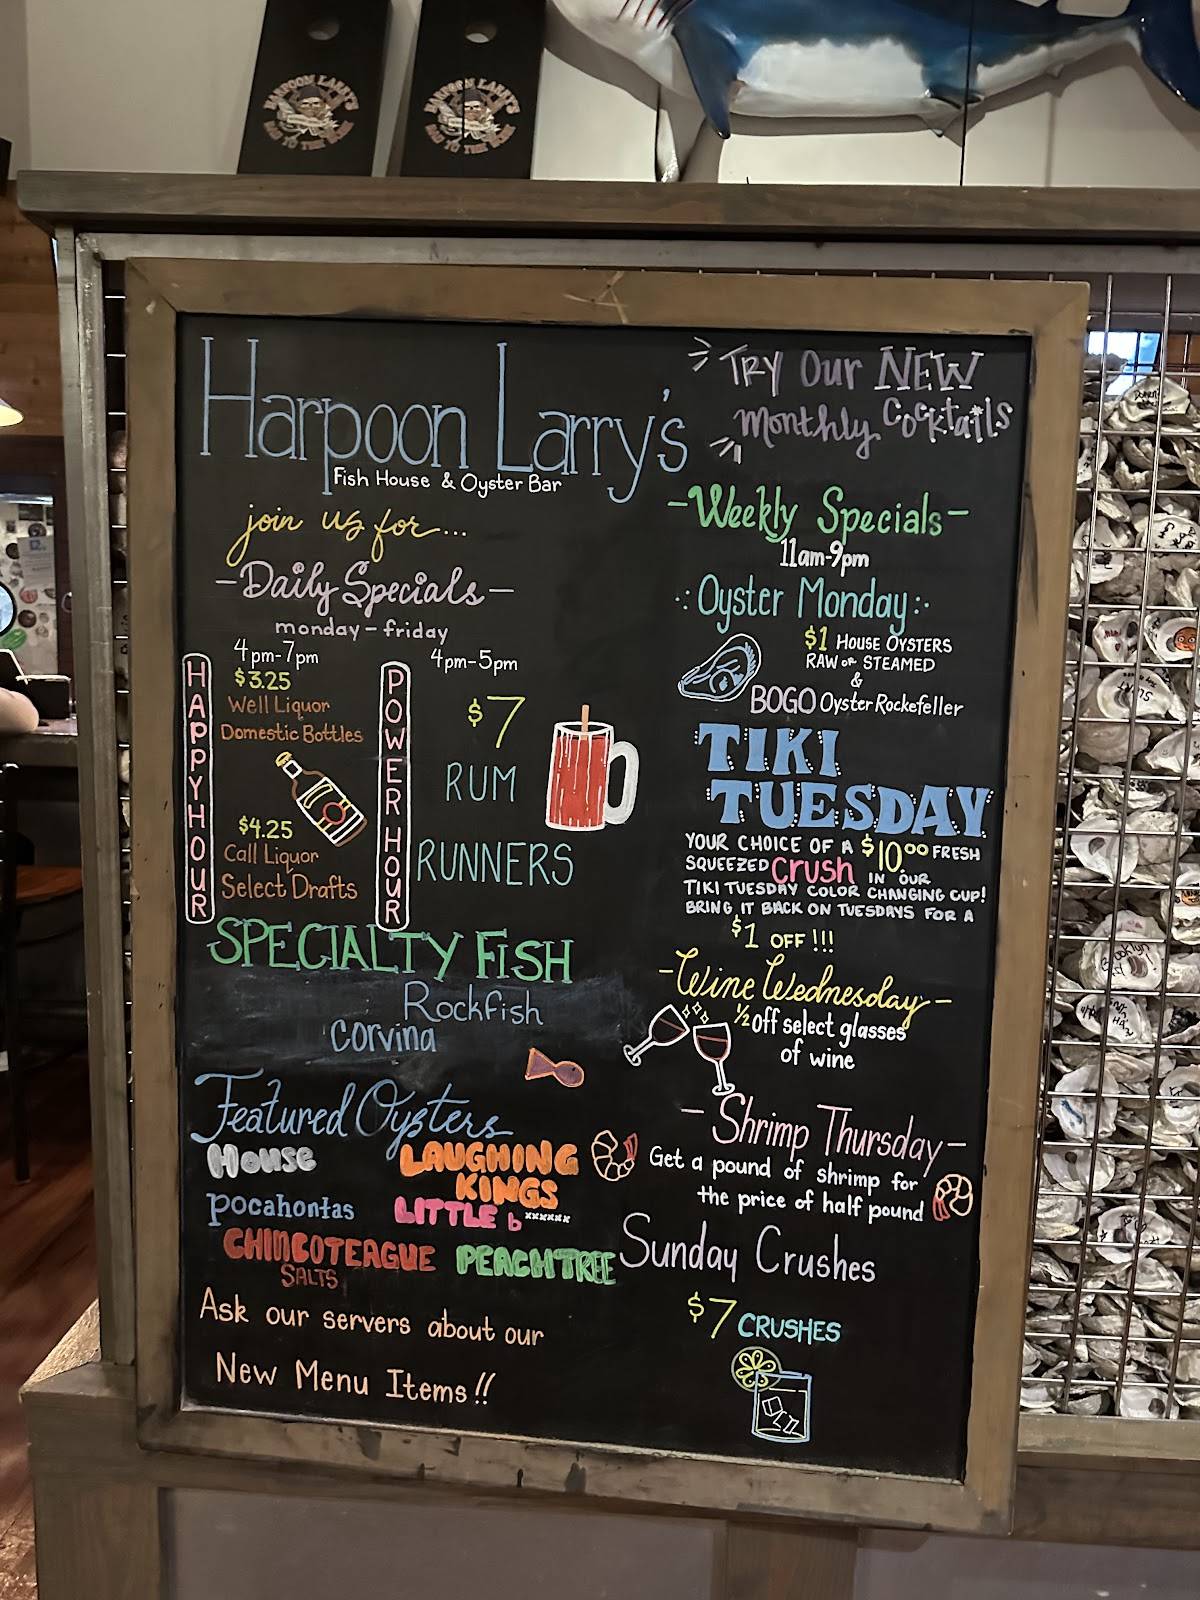 HARPOON LARRY'S
HARPOON LARRY'S
Harpoon Larry's
Fish House & Oyster Bar
join us for...
-Daily Specials-
monday-friday
HAPPY HOUR
4pm-7pm
$3.25
Well Liquor
Domestic Bottles
$4.25
Call Liquor
Select Drafts
POWER HOUR
4pm-5pm
$7
RUM
RUNNERS
SPECIALTY FISH
Rockfish
Corvina
Featured Oysters
House
LAUGHING
KINGS
Pocahontas
LITTLE b******
CHINCOTEAGUE
SALTS
PEACHTREE
Ask our servers about our
New Menu Items!!
TRY Our NEW
Monthly Cocktails
-Weekly Specials-
11am-9pm
Oyster Monday
$1 HOUSE OYSTERS
RAW or STEAMED
&
BOGO Oyster Rockefeller
TIKI
TUESDAY
YOUR CHOICE OF A $10.00 FRESH
SQUEEZED Crush IN OUR
TIKI TUESDAY COLOR CHANGING CUP!
BRING IT BACK ON TUESDAYS FOR A
$1 OFF!!!
-Wine Wednesday-
½ off select glasses
of wine
-Shrimp Thursday-
Get a pound of shrimp for
the price of half pound
Sunday Crushes
$7 CRUSHES